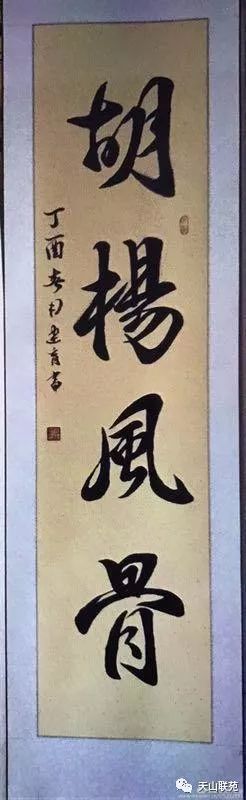 胡楊風骨
丁酉春建育書
天山联苑